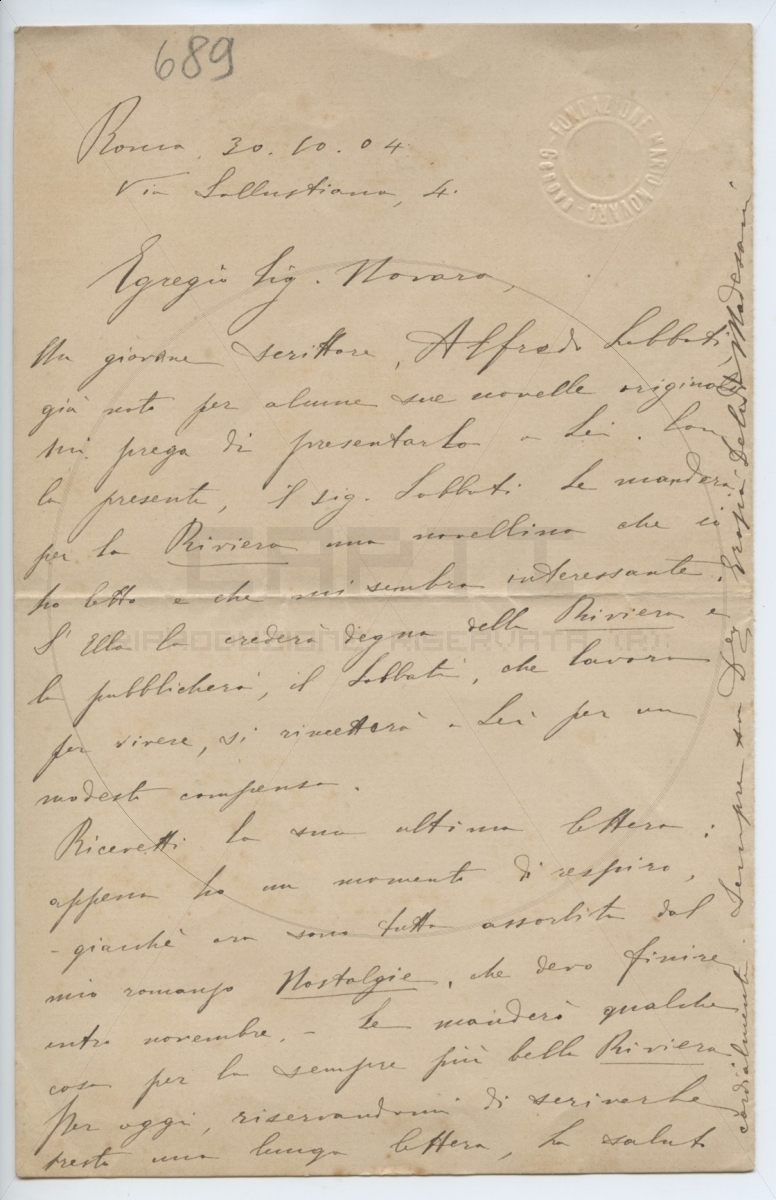 689
FONDAZIONE MARIO NOVARO - GENOVA
Roma, 30. 10. 04.
Via Sallustiana, 4.
Egregio Sig. Novaro,
Un giovane scrittore, Alfredo Sabbati
già noto per alcune sue novelle originali,
mi prega di presentarlo a Lei. Con
la presente, il sig. Sabbati Le manderà
per la Riviera una novellina che io
ho letto e che mi sembra interessante.
S'Ella la crederà degna della Riviera e
la pubblicherà, il Sabbati, che lavora
per vivere, si rimetterà a Lei per un
modesto compenso.
Ricevetti la sua ultima lettera:
appena ho un momento di respiro,
- giacchè ora sono tutta assorbita dal
mio romanzo Nostalgie, che devo finire
entro novembre, - Le manderò qualche
cosa per la sempre più bella Riviera
Per oggi, riservandomi di scriverLe
presto una lunga lettera, La saluto
cordialmente. Sempre sua Dev Grazia Deledda Madesani
RIPRODUZIONE RISERVATA